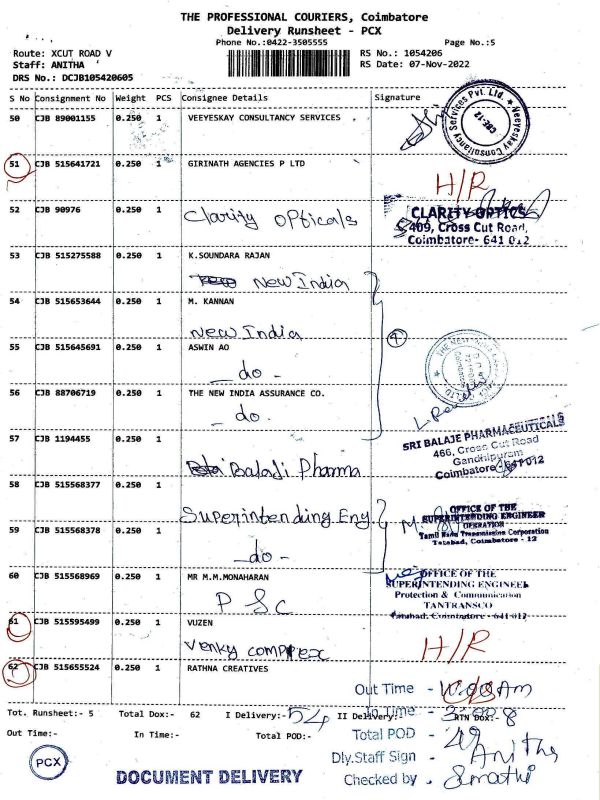 THE PROFESSIONAL COURIERS, Coimbatore
Delivery Runsheet - PCX
Phone No.:0422-3505555 Page No.:5
Route: XCUT ROAD V RS No.: 1054206
Staff: ANITHA RS Date: 07-Nov-2022
DRS No.: DCJB105420605
S No Consignment No Weight PCS Consignee Details Signature
50 CJB 89001155 0.250 1 VEEYESKAY CONSULTANCY SERVICES
Veeyeskay Consultancy Services Pvt. Ltd.
CBE-12
51 CJB 515641721 0.250 1 GIRINATH AGENCIES P LTD
H/R
52 CJB 90976 0.250 1 Clarity Opticals
CLARITY OPTICS
409, Cross Cut Road,
Coimbatore- 641 012
53 CJB 515275588 0.250 1 K.SOUNDARA RAJAN
New India
54 CJB 515653644 0.250 1 M. KANNAN
New India
4
55 CJB 515645691 0.250 1 ASWIN AO
- do -
56 CJB 88706719 0.250 1 THE NEW INDIA ASSURANCE CO.
- do.
57 CJB 1194455 0.250 1
Balaji Pharma
SRI BALAJE PHARMACEUTICALS
466, Cross Cut Road
Gandhipuram
Coimbatore - 641 012
58 CJB 515568377 0.250 1
Superintending Eng
OFFICE OF THE
SUPERINTENDING ENGINEER
OPERATION
Tamil Nadu Transmission Corporation
Tatabad, Coimbatore - 12
59 CJB 515568378 0.250 1
-do-
60 CJB 515568969 0.250 1 MR M.M.MONAHARAN
OFFICE OF THE
SUPERINTENDING ENGINEER
Protection & Communication
TANTRANSCO
Tatabad, Coimbatore - 641 012
61 CJB 515595499 0.250 1 VUZEN
Venky Complex
H/R
62 CJB 515655524 0.250 1 RATHNA CREATIVES
Out Time - 10.00 Am
Tot. Runsheet:- 5 Total Dox:- 62 I Delivery:- 54 II Delivery:- RTN Dox:- 8
In Time -
Out Time:- In Time:- Total POD:-
Total POD - 49
Dly.Staff Sign - Anitha
Checked by - Sumathi
PCX
DOCUMENT DELIVERY